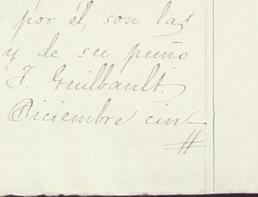 por él, son las
y de su puño
F. Guilbault.
Diciembre cin-